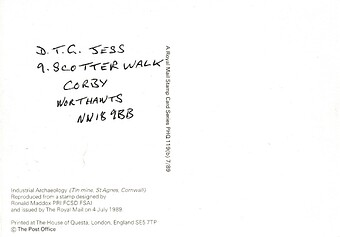 D.T.G. JESS
9. SCOTTER WALK
CORBY
NORTHANTS
NN18 9BB
A Royal Mail Stamp Card Series PHQ 119(b) 7/89
Industrial Archaeology (Tin mine, St Agnes, Cornwall)
Reproduced from a stamp designed by
Ronald Maddox PRI FCSD FSAI
and issued by The Royal Mail on 4 July 1989
Printed at The House of Questa, London, England SE5 7TP
© The Post Office